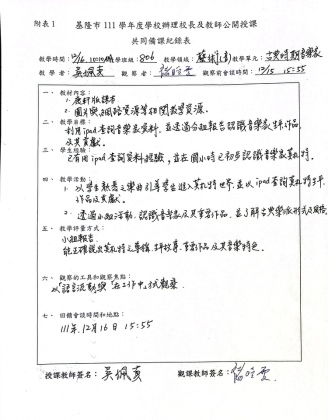 附表 1
基隆市 111 學年度學校辦理校長及教師公開授課
共同備課紀錄表
教學時間：12/16, 10:10 教學班級：806 教學領域：藝術(音) 教學單元：古典時期音樂家
教 學 者：吳佩真 觀 察 者： 觀察前會談時間：12/15 15:55
一、 教材內容：
1. 康軒版課本
2. 圖片與網路資源等相關教學資源。
二、 教學目標：
利用ipad查詢音樂家資料，並透過分組報告認識音樂家其作品，
及其貢獻。
三、 學生經驗：
已有用ipad查詢資料經驗，並在國小時已初步認識音樂家莫札特。
四、 教學活動：
1. 以學生熟悉之樂曲引導學生進入莫札特世界，並以ipad查詢莫札特生平、
作品及貢獻。
2. 透過小組活動，認識音樂家及其重要作品，並了解古典樂派形式及風格。
五、 教學評量方式：
小組報告：
能正確說出莫札特之專稱，其故事、重要作品及其音樂特色。
六、 觀察的工具和觀察焦點：
以「語言流動與「在工作中」式觀察。
七、 回饋會談時間和地點：
111年 12月 16日 15:55
授課教師簽名：吳佩真 觀課教師簽名：